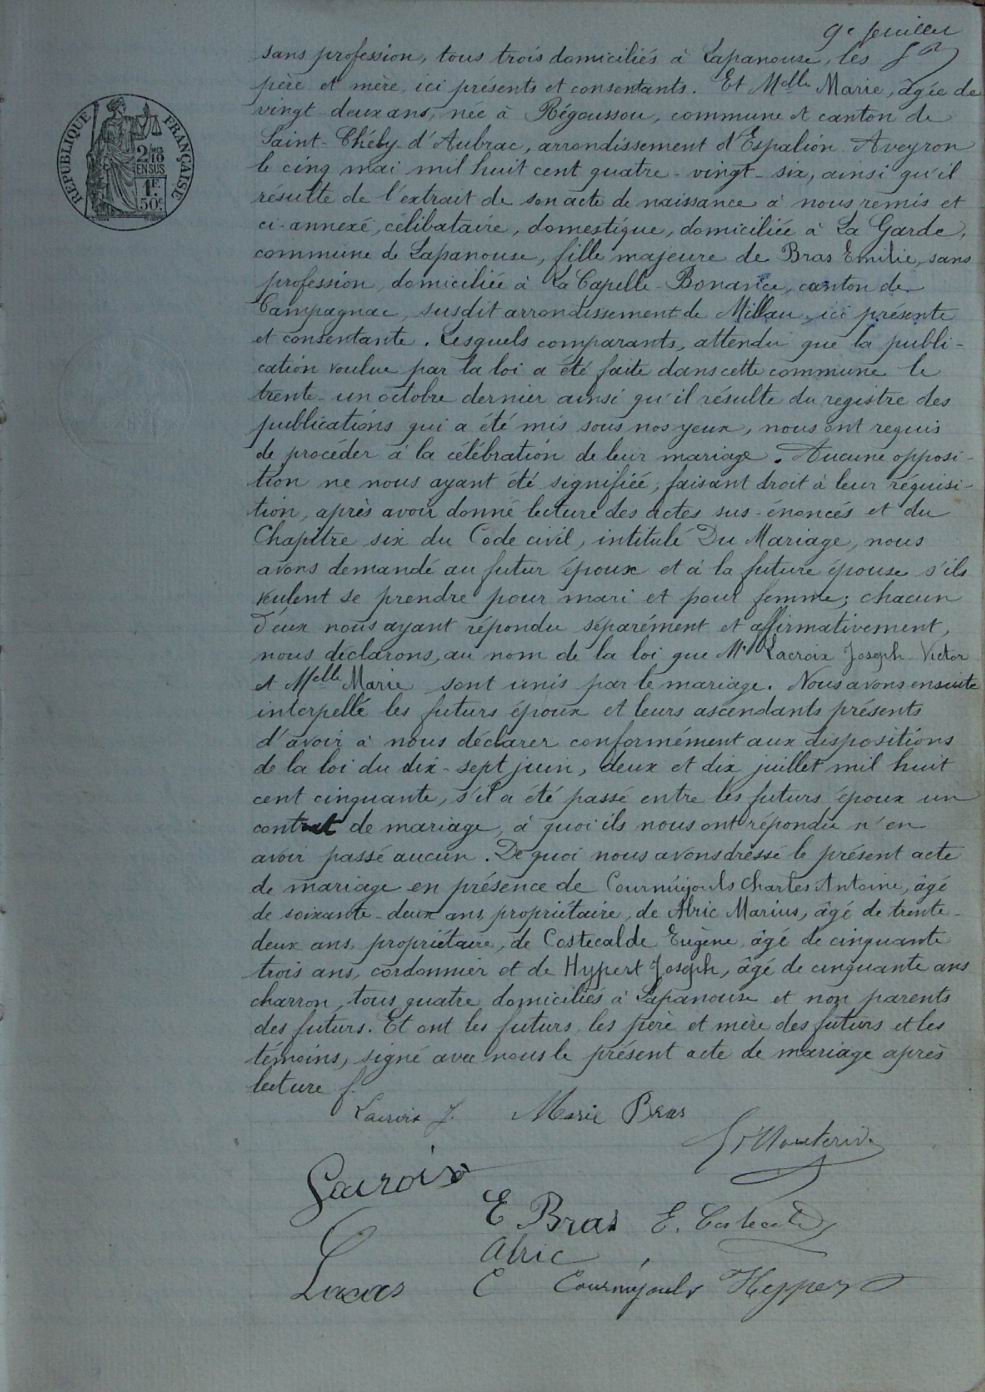 9e feuillet
sans profession, tous trois domiciliés à Lapanouse, les
père et mère, ici présents et consentants. Et Melle Marie, âgée de
vingt deux ans, née à Régoussou, commune et canton de
Saint-Chély-d'Aubrac, arrondissement d'Espalion Aveyron
le cinq mai mil huit cent quatre-vingt-six, ainsi qu'il
résulte de l'extrait de son acte de naissance à nous remis et
ci-annexé, célibataire, domestique, domiciliée à La Garde,
commune de Lapanouse, fille majeure de Bras Emilie, sans
profession, domiciliée à La Capelle-Bonance, canton de
Campagnac, susdit arrondissement de Millau, ici présente
et consentante. Lesquels comparants, attendu que la publi-
cation voulue par la loi a été faite dans cette commune le
trente-un octobre dernier ainsi qu'il résulte du registre des
publications qui a été mis sous nos yeux, nous ont requis
de procéder à la célébration de leur mariage. Aucune opposi-
tion ne nous ayant été signifiée, faisant droit à leur réquisi-
tion, après avoir donné lecture des actes sus-énoncés et du
Chapitre six du Code civil, intitulé Du Mariage, nous
avons demandé au futur époux et à la future épouse s'ils
veulent se prendre pour mari et pour femme; chacun
d'eux nous ayant répondu séparément et affirmativement,
nous déclarons, au nom de la loi que Mr Lacroix Joseph Victor
et Melle Marie sont unis par le mariage. Nous avons ensuite
interpellé les futurs époux et leurs ascendants présents
d'avoir à nous déclarer conformément aux dispositions
de la loi du dix-sept juin, deux et dix juillet mil huit
cent cinquante, s'il a été passé entre les futurs époux un
contrat de mariage, à quoi ils nous ont répondu n'en
avoir passé aucun. De quoi nous avons dressé le présent acte
de mariage en présence de Courníjouls Charles Antoine, âgé
de soixante-deux ans, propriétaire, de Alric Marius, âgé de trente-
deux ans, propriétaire, de Costecalde Eugène, âgé de cinquante
trois ans, cordonnier et de Hypert Joseph, âgé de cinquante ans
charron, tous quatre domiciliés à Lapanouse et non parents
des futurs. Et ont les futurs, les père et mère des futurs et les
témoins, signé avec nous le présent acte de mariage après
lecture
Lacroix J. Marie Bras
Lacroix
E Bras E. Costecalde
Alric
Lucas C Courníjouls
RÉPUBLIQUE FRANÇAISE
2/10 EN SUS
1F. 50c.